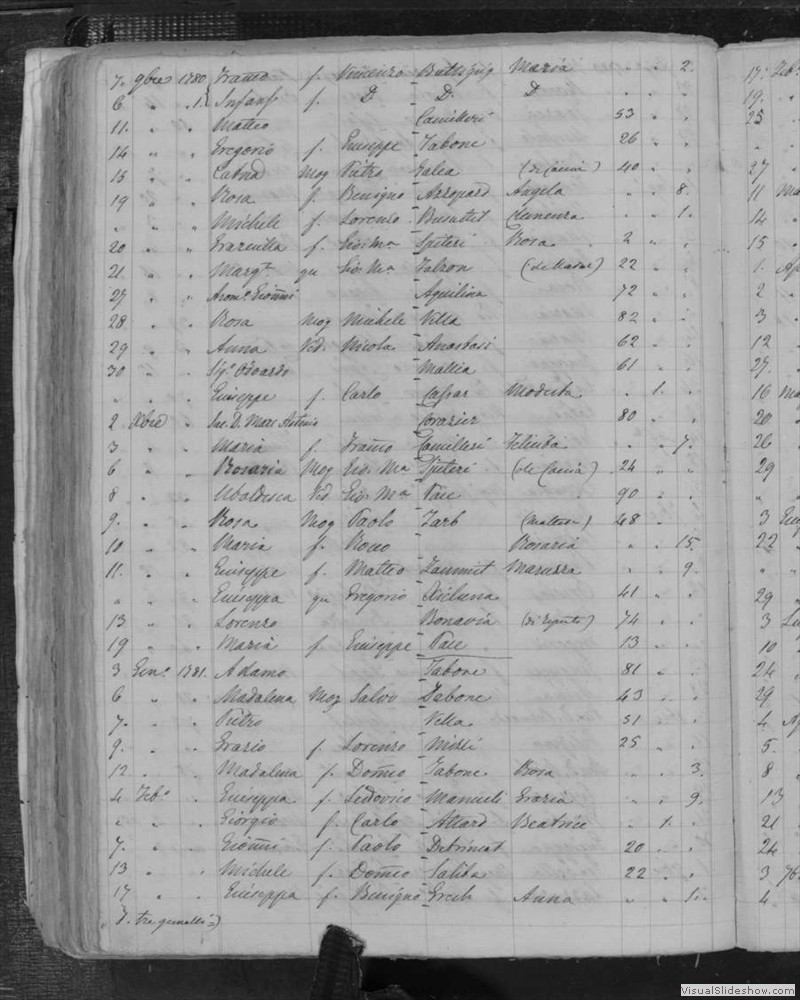 7. 9bre 1780 Franco f. Vincenzo Buttigig Maria . . 2.
6 . . 1. Infans f. D D D . . .
11. " . Matteo Camilleri 53 . .
14 " . Gregorio f. Giuseppe Tabone 26 . .
15 . . Catnā Mog Pietro Galea 40 . .
19 " . Rosa f. Benigno Azzopard Angela . . 8.
" . . Michele f. Lorenzo Busuttil . . 1.
20 " . Grazulla f. Gio: Ma Spiteri Rosa 2 " .
21 . . Margta qu Gio: Ma Falzon 22 . .
27 . . Giōnni Aquilina 72 . .
28 . . Rosa Mog Michele Vella 82 . .
29 . . Anna Vid. Nicola Anastasi 62 . .
30 . . Sigr Odoardo Mallia 61 . .
. . . Giuseppe f. Carlo Caspar Modesta . 1. .
2 Xbre . Sac. D. Marc Antonio 80 . .
3 . . Maria f. Franco Camilleri . . 7.
6 . . Rosaria Mog Gio: Ma Spiteri 24 . .
8 . . Ubaldesca Vid Gio: Ma Pace 90 . .
9. . . Rosa Mog Paolo Zarb (maltese) 48 . .
10 . . Maria f. Rosario . . 15.
11. . . Giuseppe f. Matteo Zammit Maruzza . . 9.
. . . Giuseppa qu Gregorio Xicluna 41 . .
13 . . Lorenzo Bonavia 74 . .
19 . . Maria f Giuseppe Pace 13 . .
3 Genn. 1781. Adamo Tabone 81 . .
6 " . Madalena Mog Salvo Tabone 43 . .
7. . . Pietro Vella 51 . .
9. . . Grazio f. Lorenzo Missi 25 . .
12 . . Madalena f. Domco Tabone Rosa . . 3.
4 Feb. . Giuseppa f. Ledovico Mamieli Grazia . . 9.
. . . Giorgio f. Carlo Attard Beatrice . 1. .
7. . . Giōnni f. Paolo 20 . .
13 . . Michele f. Domco Saliba 22 . .
17 . . Giuseppa f. Benigno Grech Anna . . 1.
tre gemelli
17.
19.
25
27
11 Ma
14
15
1. Ap
2
3
12
27.
16 Ma
20
26
29
3 Giug
22
29
3 Lu
10
24
29
4 Ag
5.
8
13
21
24
3 7b
4
VisualSlideshow.com